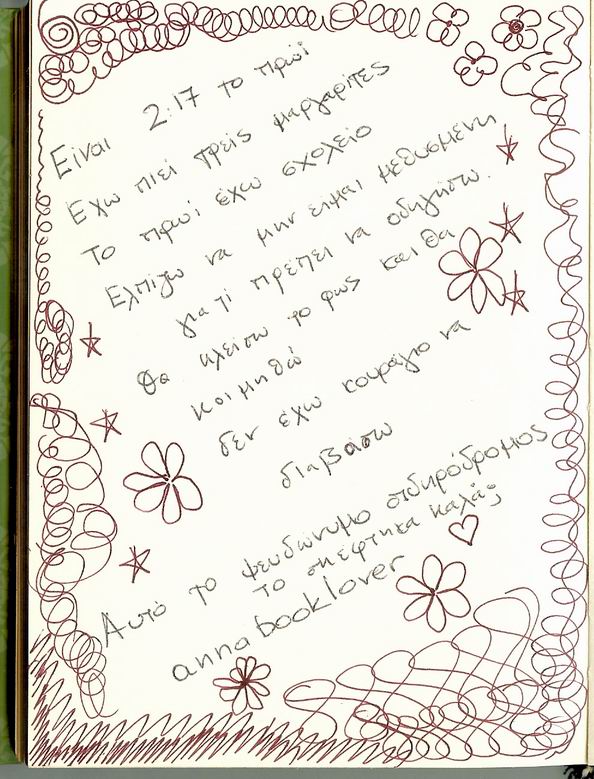 Είναι 2:17 το πρωί
Έχω πιεί τρεις μαργαρίτες
Το πρωί έχω σχολείο
Ελπίζω να μην είμαι μεθυσμένη
γιατί πρέπει να οδηγήσω.
Θα κλείσω το φως και θα
κοιμηθώ
δεν έχω κουράγιο να
διαβάσω
Αυτό το ψευδώνυμο σιδηρόδρομος
το σκέφτηκα καλά;
anna booklover